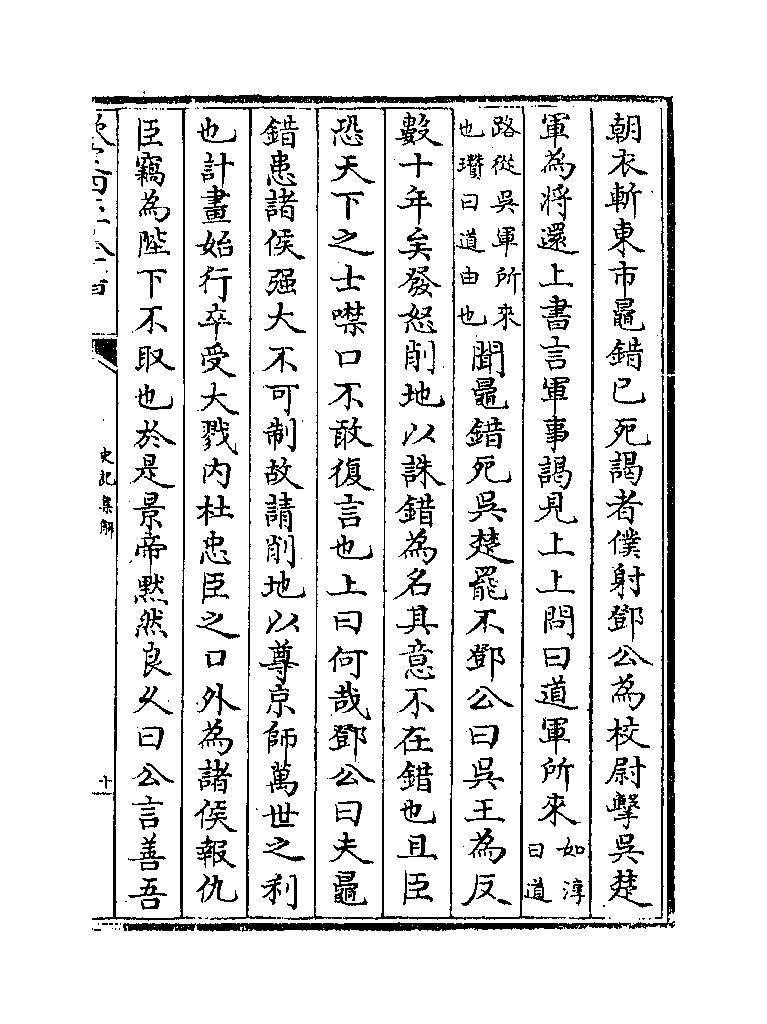 朝衣斬東市鼂錯已死謁者僕射鄧公為校尉擊吳楚
軍為將還上書言軍事謁見上上問曰道軍所來如淳曰道
路從吳軍所來也瓚曰道由也聞鼂錯死吳楚罷不鄧公曰吳王為反
數十年矣發怒削地以誅錯為名其意不在錯也且臣
恐天下之士噤口不敢復言也上曰何哉鄧公曰夫鼂
錯患諸侯强大不可制故請削地以尊京師萬世之利
也計畫始行卒受大戮内杜忠臣之口外為諸侯報仇
臣竊為陛下不取也於是景帝黙然良久曰公言善吾
史記集解
十